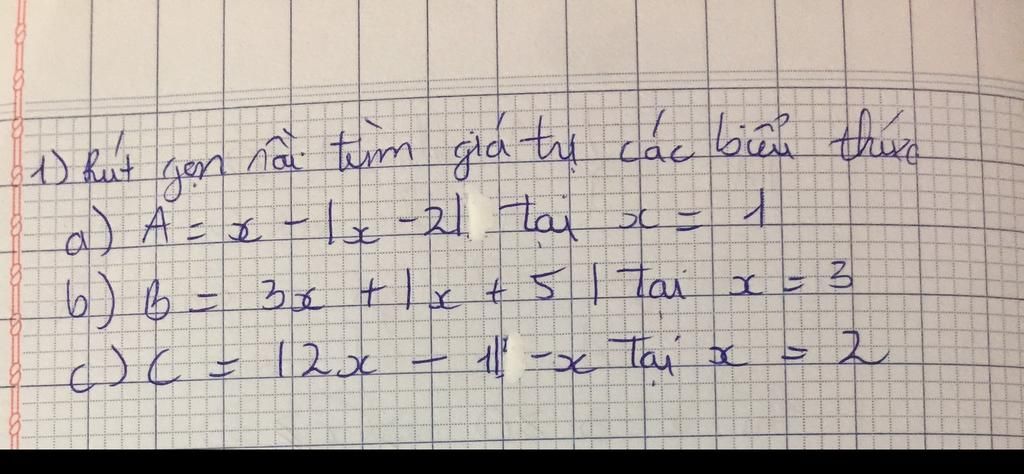 1) Rút gọn rồi tìm giá trị các biểu thức
a) A = x - |x - 2| tại x = 1
b) B = 3x + |x + 5| tại x = 3
c) C = |2x - 1| - x tại x = 2